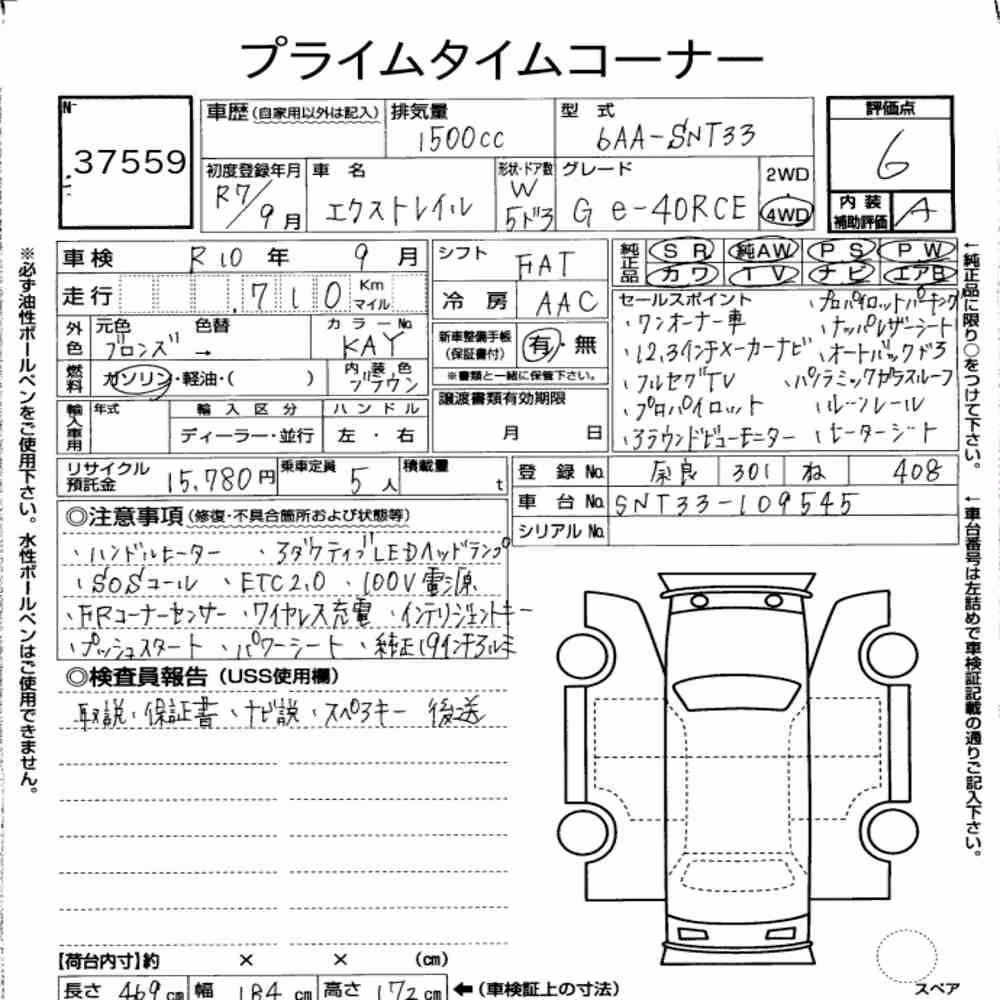 プライムタイムコーナー
37559
車歴 (自家用以外は記入) 排気量 1500cc 型式 6AA-SNT33 評価点 6
初度登録年月 R7/9月 車名 エクストレイル 形状・ドア数 W 5ドア グレード G e-4ORCE 2WD 4WD 内装補助評価 A
車検 R10年 9月 シフト FAT 純正品 SR 純AW PS PW
カワ TV ナビ エアB
走行 710 Km マイル 冷房 AAC
外色 元色 ブロンズ 色替 → カラーNo. KAY
燃料 ガソリン・軽油・( ) 内装色 ブラウン
新車整備手帳 (保証書付) 有・無
※書類と一緒に保管下さい。
輸入車用 年式 輸入区分 ディーラー・並行 ハンドル 左・右
譲渡書類有効期限 月 日
セールスポイント ・プロパイロットパーキング
・ワンオーナー車 ・ナッパレザーシート
・12,3インチメーカーナビ ・オートバックドア
・フルセグTV ・パノラミックガラスルーフ
・プロパイロット ・ルーフレール
・アラウンドビューモニター ・ヒーターシート
リサイクル預託金 15,780円 乗車定員 5人 積載量 t
登録No. 奈良 301 ね 408
車台No. SNT33-109545
シリアルNo.
◎注意事項 (修復・不具合箇所および状態等)
・ハンドルヒーター ・アダクティブLEDヘッドランプ
・SOSコール ・ETC2.0 ・100V電源
・FRコーナーセンサー ・ワイヤレス充電 ・インテリジェントキー
・プッシュスタート ・パワーシート ・純正19インチアルミ
◎検査員報告 (USS使用欄)
取説・保証書・ナビ説・スペアキー 後送
【荷台内寸】約 × × (cm)
長さ 469cm 幅 184cm 高さ 172cm ←(車検証上の寸法)
スペア
※必ず油性ボールペンをご使用下さい。水性ボールペンはご使用できません。
←純正品に限り○をつけて下さい。
←車台番号は左詰めで車検証記載の通りご記入下さい。